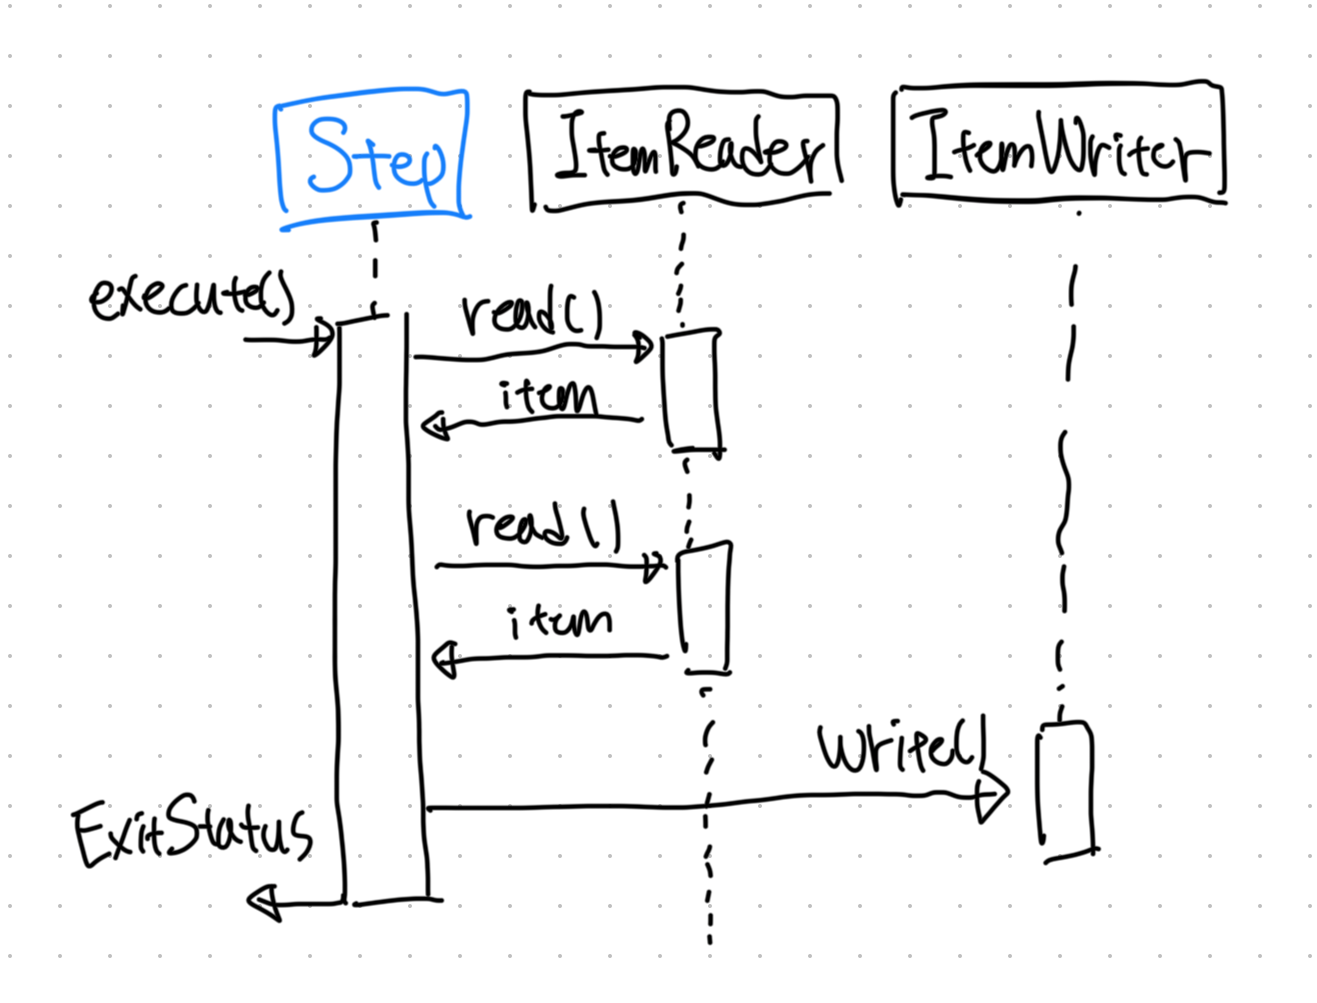 Step
ItemReader
ItemWriter
execute()
read()
item
read()
item
write()
ExitStatus